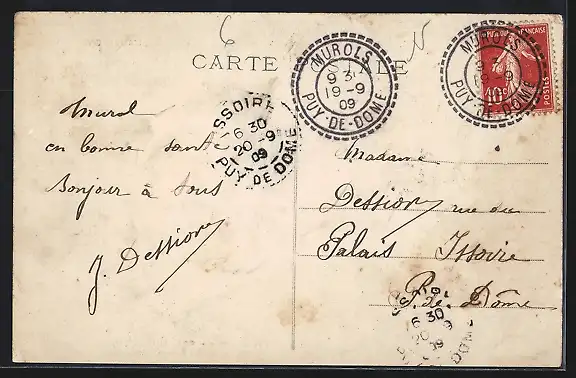 6
CARTE
MUROLS
9 3
19-9
09
PUY-DE-DOME
MUROLS
19-9
09
PUY-DE-DOME
10
POSTES
ISSOIRE
6 30
20-9
09
PUY DE DOME
Murol
en bonne santé
Bonjour à tous
J. Dessiony
Madame
Dessiony rue du
Palais Issoire
P. de. Dôme
6 30
20-9
09
DOME